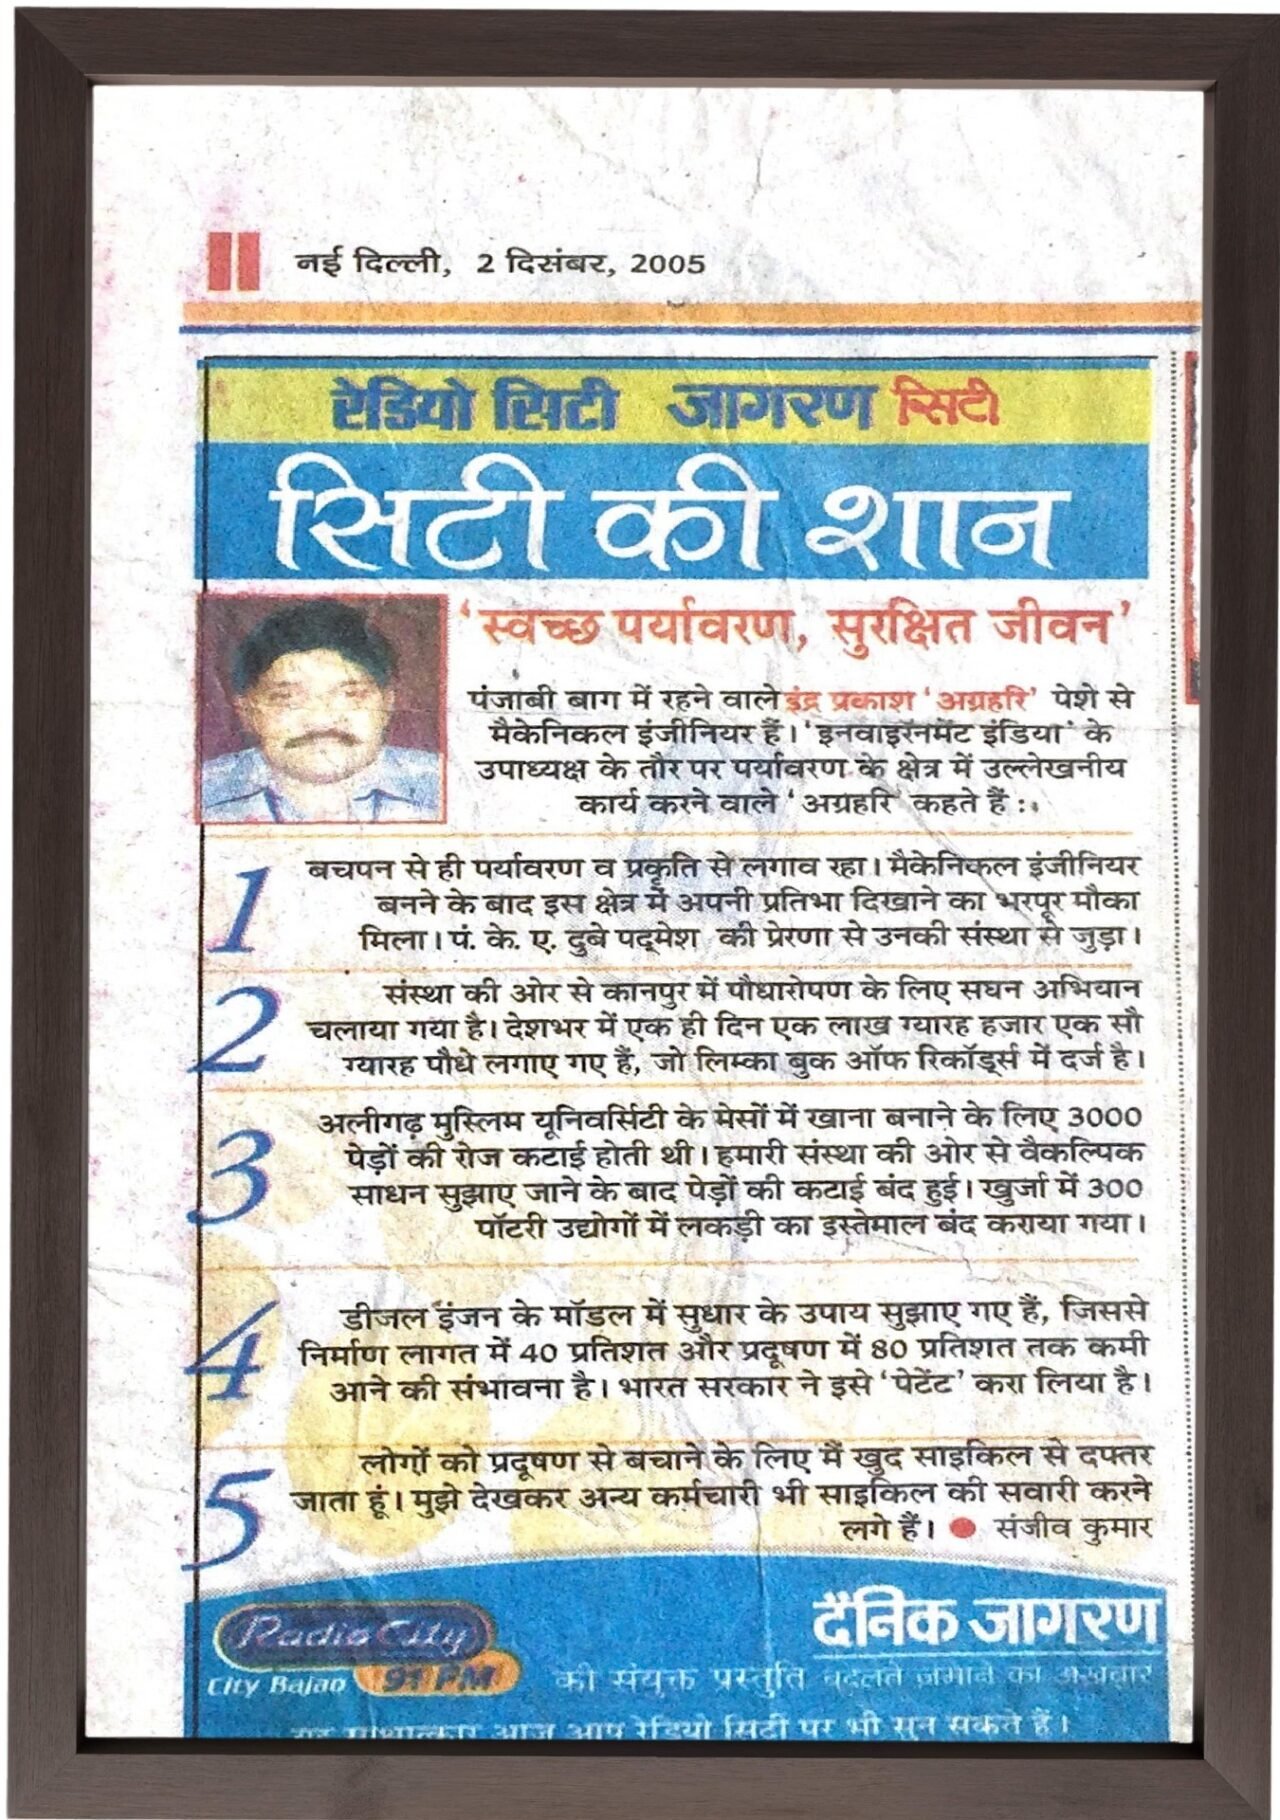 नई दिल्ली, 2 दिसंबर, 2005
रेडियो सिटी जागरण सिटी
सिटी की शान
'स्वच्छ पर्यावरण, सुरक्षित जीवन'
पंजाबी बाग में रहने वाले इंद्र प्रकाश 'अग्रहरि' पेशे से
मैकेनिकल इंजीनियर हैं। 'इनवाइरॅनमेंट इंडिया' के
उपाध्यक्ष के तौर पर पर्यावरण के क्षेत्र में उल्लेखनीय
कार्य करने वाले 'अग्रहरि' कहते हैं :
1
बचपन से ही पर्यावरण व प्रकृति से लगाव रहा। मैकेनिकल इंजीनियर
बनने के बाद इस क्षेत्र में अपनी प्रतिभा दिखाने का भरपूर मौका
मिला। पं. के. ए. दुबे पद्मेश की प्रेरणा से उनकी संस्था से जुड़ा।
2
संस्था की ओर से कानपुर में पौधारोपण के लिए सघन अभियान
चलाया गया है। देशभर में एक ही दिन एक लाख ग्यारह हजार एक सौ
ग्यारह पौधे लगाए गए हैं, जो लिम्का बुक ऑफ रिकॉर्ड्स में दर्ज है।
3
अलीगढ़ मुस्लिम यूनिवर्सिटी के मेसों में खाना बनाने के लिए 3000
पेड़ों की रोज कटाई होती थी। हमारी संस्था की ओर से वैकल्पिक
साधन सुझाए जाने के बाद पेड़ों की कटाई बंद हुई। खुर्जा में 300
पॉटरी उद्योगों में लकड़ी का इस्तेमाल बंद कराया गया।
4
डीजल इंजन के मॉडल में सुधार के उपाय सुझाए गए हैं, जिससे
निर्माण लागत में 40 प्रतिशत और प्रदूषण में 80 प्रतिशत तक कमी
आने की संभावना है। भारत सरकार ने इसे 'पेटेंट' करा लिया है।
5
लोगों को प्रदूषण से बचाने के लिए मैं खुद साइकिल से दफ्तर
जाता हूं। मुझे देखकर अन्य कर्मचारी भी साइकिल की सवारी करने
लगे हैं। ● संजीव कुमार
Radio City
City Bajao 91 FM
दैनिक जागरण
की संयुक्त प्रस्तुति बदलते ज़माने का अखबार
आज आप रेडियो सिटी पर भी सुन सकते हैं।